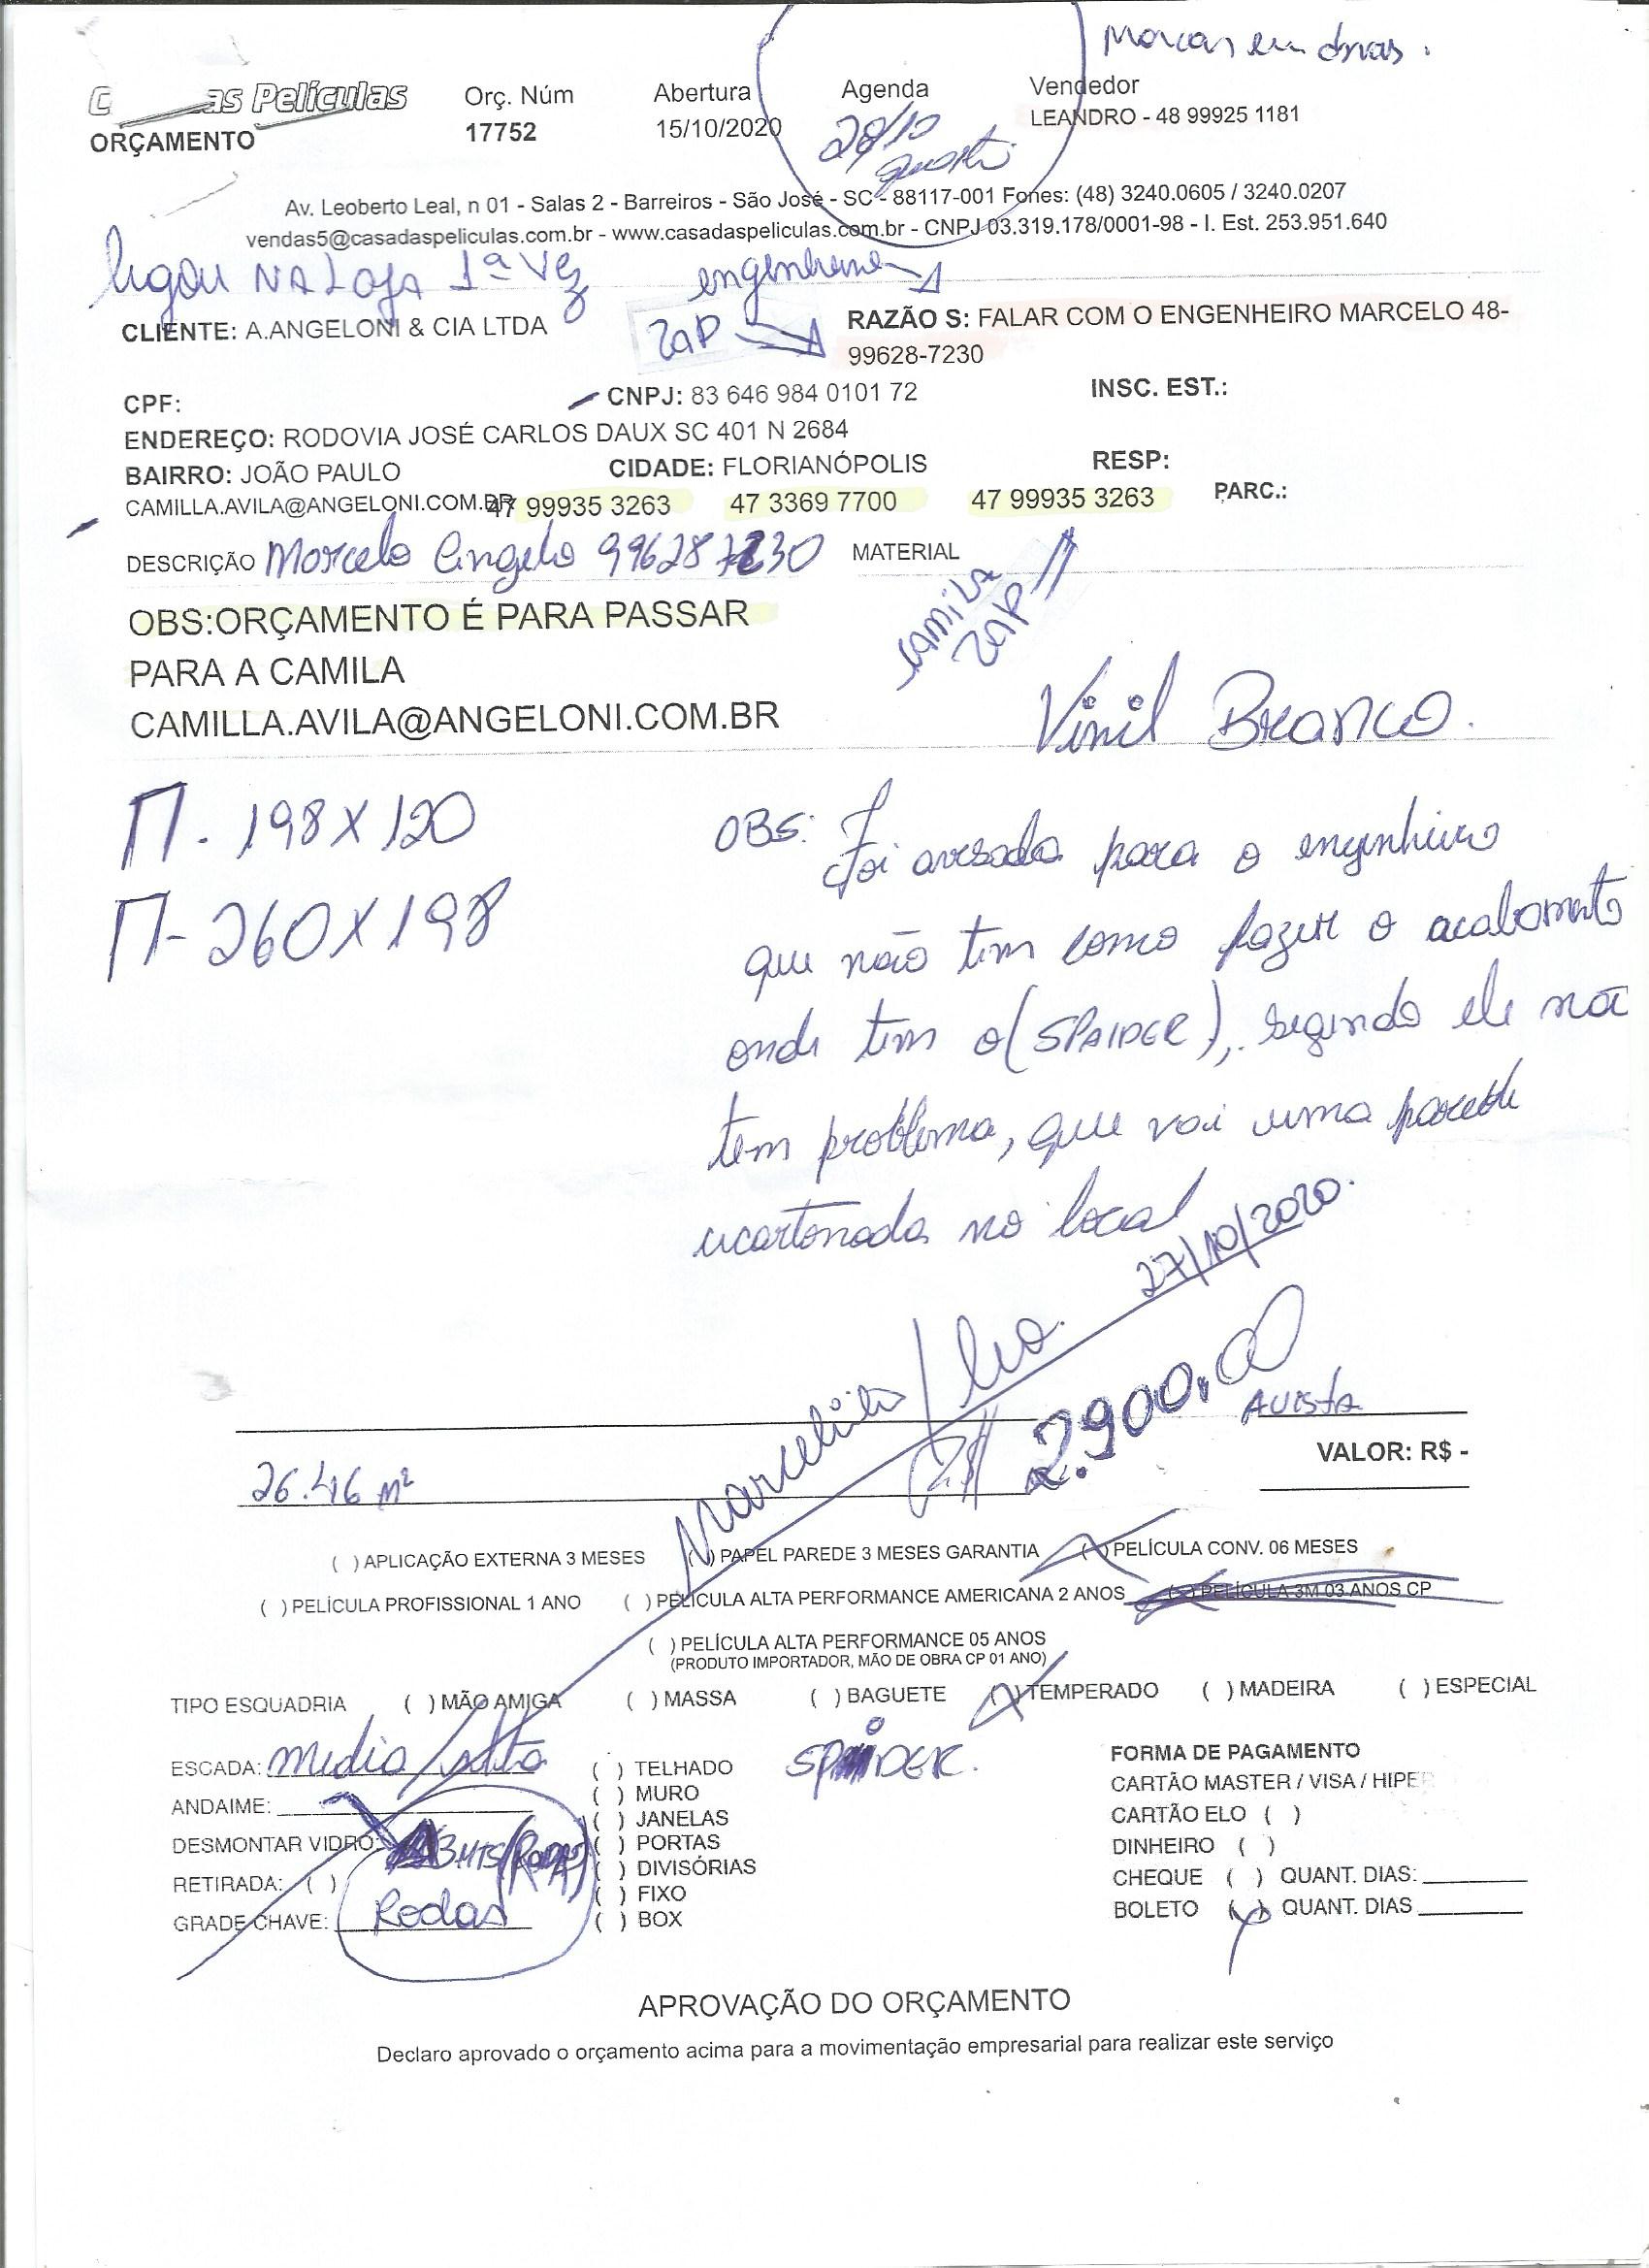 marcas em obras.
as Películas
ORÇAMENTO
Orç. Núm
17752
Abertura
15/10/2020
Agenda
28/10
quarta
Vendedor
LEANDRO - 48 99925 1181
Av. Leoberto Leal, n 01 - Salas 2 - Barreiros - São José - SC - 88117-001 Fones: (48) 3240.0605 / 3240.0207
vendas5@casadaspeliculas.com.br - www.casadaspeliculas.com.br - CNPJ 03.319.178/0001-98 - I. Est. 253.951.640
ligou NA LOJA 1ª Vez
zap
CLIENTE: A.ANGELONI & CIA LTDA
RAZÃO S: FALAR COM O ENGENHEIRO MARCELO 48-
99628-7230
CPF:
CNPJ: 83 646 984 0101 72
INSC. EST.:
ENDEREÇO: RODOVIA JOSÉ CARLOS DAUX SC 401 N 2684
BAIRRO: JOÃO PAULO
CIDADE: FLORIANÓPOLIS
RESP:
CAMILLA.AVILA@ANGELONI.COM.BR
47 99935 3263
47 3369 7700
47 99935 3263
PARC.:
DESCRIÇÃO Marcelo Angelo 996287230
MATERIAL
camila
zap
OBS:ORÇAMENTO É PARA PASSAR
PARA A CAMILA
CAMILLA.AVILA@ANGELONI.COM.BR
Vinil Branco.
198 X 120
260 X 198
OBS: Foi avisado para o engenheiro
que não tem como fazer o acabamento
onde tem o (SPAIDER), segundo ele não
tem problema, que vai uma parede
acartonada no local
27/10/2020.
Marcelinho / Leo.
R$ 2.900,00
AVISTA
VALOR: R$ -
26.46 m²
( ) APLICAÇÃO EXTERNA 3 MESES
( ) PAPEL PAREDE 3 MESES GARANTIA
( ) PELÍCULA CONV. 06 MESES
( ) PELÍCULA PROFISSIONAL 1 ANO
( ) PELÍCULA ALTA PERFORMANCE AMERICANA 2 ANOS
( ) PELÍCULA 3M 03 ANOS CP
( ) PELÍCULA ALTA PERFORMANCE 05 ANOS
(PRODUTO IMPORTADOR, MÃO DE OBRA CP 01 ANO)
TIPO ESQUADRIA
( ) MÃO AMIGA
( ) MASSA
( ) BAGUETE
( ) TEMPERADO
( ) MADEIRA
( ) ESPECIAL
ESCADA: media / alta
ANDAIME:
DESMONTAR VIDRO: 3 MTS (RODA)
RETIRADA: ( )
GRADE CHAVE: Rodas
( ) TELHADO
( ) MURO
( ) JANELAS
( ) PORTAS
( ) DIVISÓRIAS
( ) FIXO
( ) BOX
SPAIDER.
FORMA DE PAGAMENTO
CARTÃO MASTER / VISA / HIPER
CARTÃO ELO ( )
DINHEIRO ( )
CHEQUE ( ) QUANT. DIAS:
BOLETO (X) QUANT. DIAS
APROVAÇÃO DO ORÇAMENTO
Declaro aprovado o orçamento acima para a movimentação empresarial para realizar este serviço